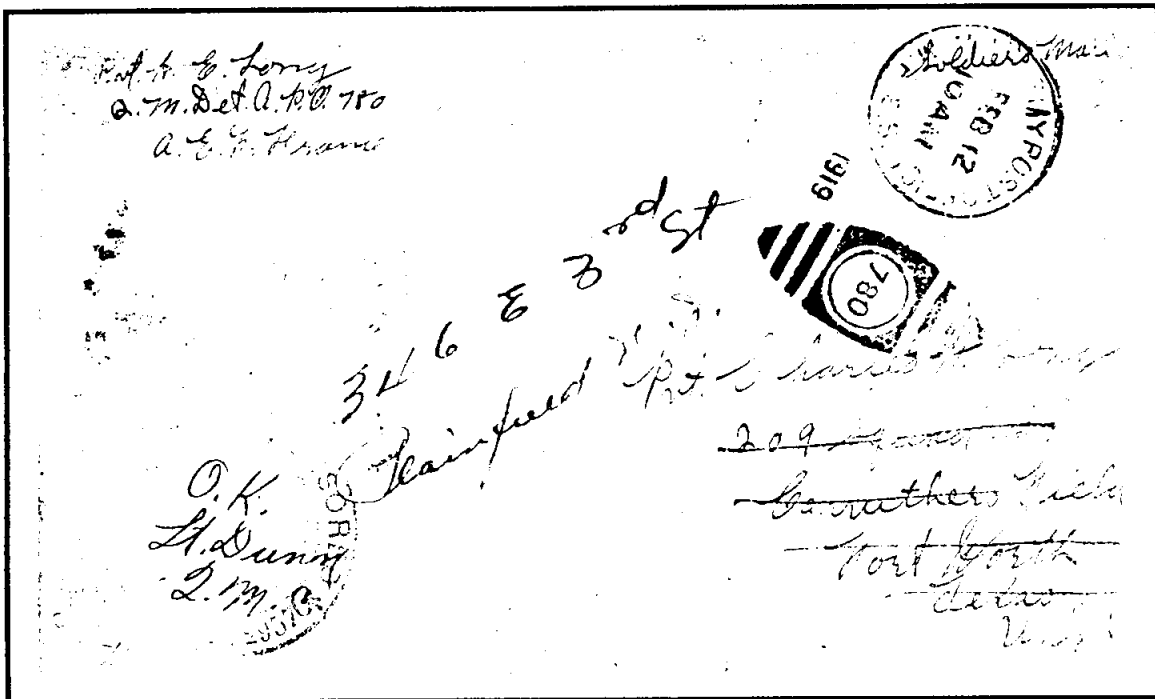 Pvt. A. E. Long
Q.M. Det. A.P.O. 780
A.E.F. France
Soldier's Mail
FEB 12
10 AM
1919
780
346 E 3rd St
Plainfield N.J.
Pvt. Charles Long
209
Carruthers Field
Fort Worth
Texas
O.K.
Lt. Dunn
Q.M.C.